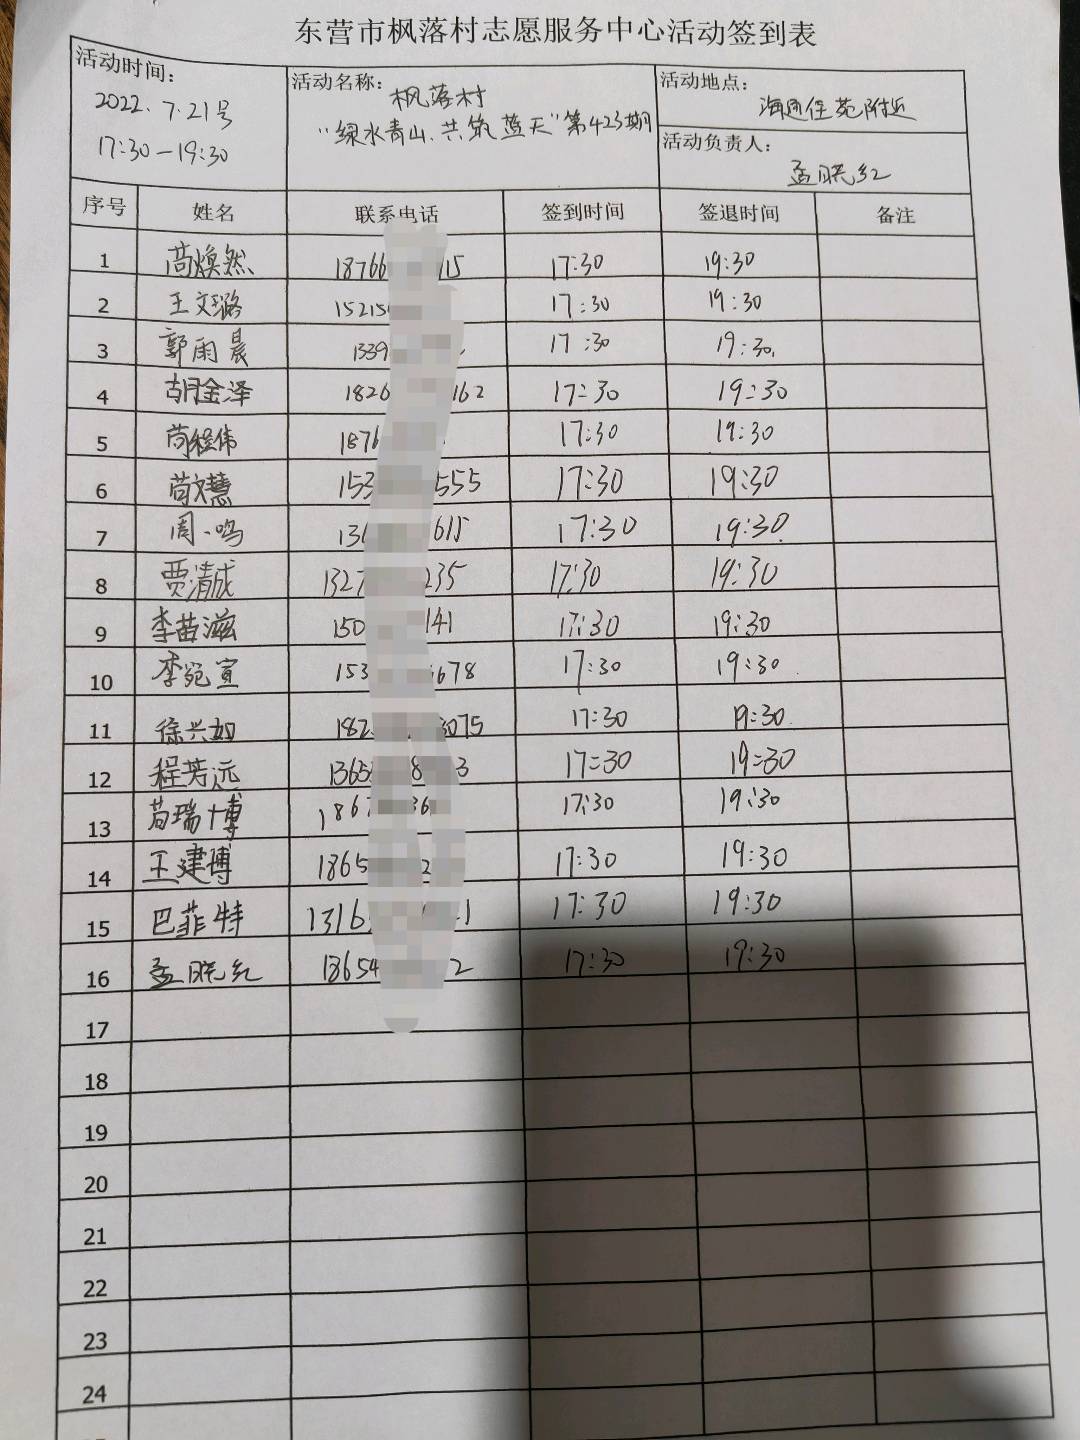 东营市枫落村志愿服务中心活动签到表
活动时间：
2022.7.21号
17:30-19:30
活动名称：
枫落村
"绿水青山、共筑蓝天"第423期
活动地点：
海通佳苑附近
活动负责人：
孟晓红
序号 姓名 联系电话 签到时间 签退时间 备注
1 苘焕然 18766 15 17:30 19:30
2 王文璐 15215 17:30 19:30
3 郭雨晨 1339 17:30 19:30
4 胡金泽 1826 162 17:30 19:30
5 苘程伟 1876 17:30 19:30
6 苘文慧 153 555 17:30 19:30
7 周一鸣 136 615 17:30 19:30
8 贾清成 1327 235 17:30 19:30
9 李苗滋 150 141 17:30 19:30
10 李宛宣 153 678 17:30 19:30
11 徐兴如 182 3075 17:30 19:30
12 程芳远 1365 8 3 17:30 19:30
13 苘瑞博 1867 36 17:30 19:30
14 王建博 1865 2 17:30 19:30
15 巴菲特 1316 1 17:30 19:30
16 孟晓红 18654 2 17:30 19:30
17
18
19
20
21
22
23
24